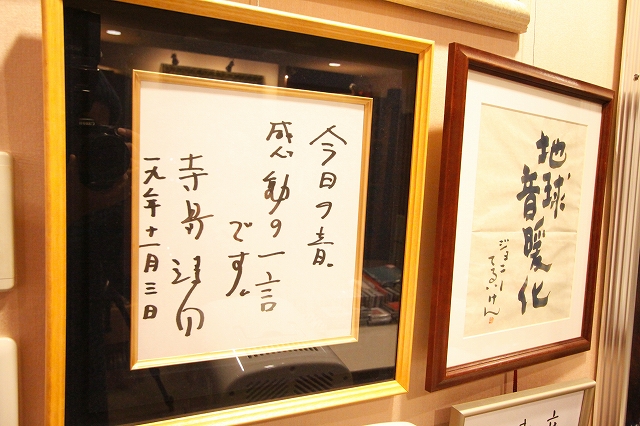 今日の音。
感動の一言
です。
寺島靖国
一九年十一月三日
地球
音暖化
ジョニー
てるいけん